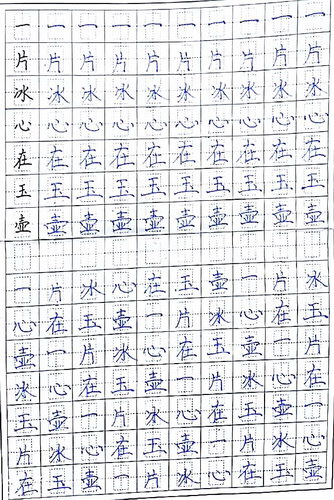 一一一一一一一一一一
片片片片片片片片片片
冰冰冰冰冰冰冰冰冰冰
心心心心心心心心心心
在在在在在在在在在在
玉玉玉玉玉玉玉玉玉玉
壶壶壶壶壶壶壶壶壶壶
一片冰心在玉壶一片冰
心在玉壶一片冰心在玉
壶一片冰心在玉壶一片
冰心在玉壶一片冰心在
玉壶一片冰心在玉壶一
片冰心在玉壶一片冰心
在玉壶一片冰心在玉壶